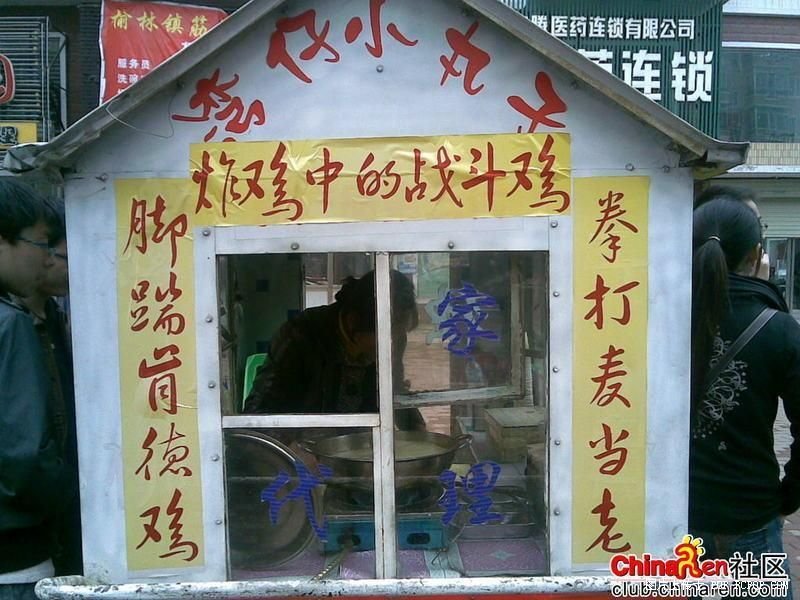 榆林镇筋
服务员
洗碗
医药连锁有限公司
药连锁
小丸
炸鸡中的战斗鸡
拳打麦当老
脚踹肯德鸡
家
代理
ChinaRen社区
club.chinaren.com